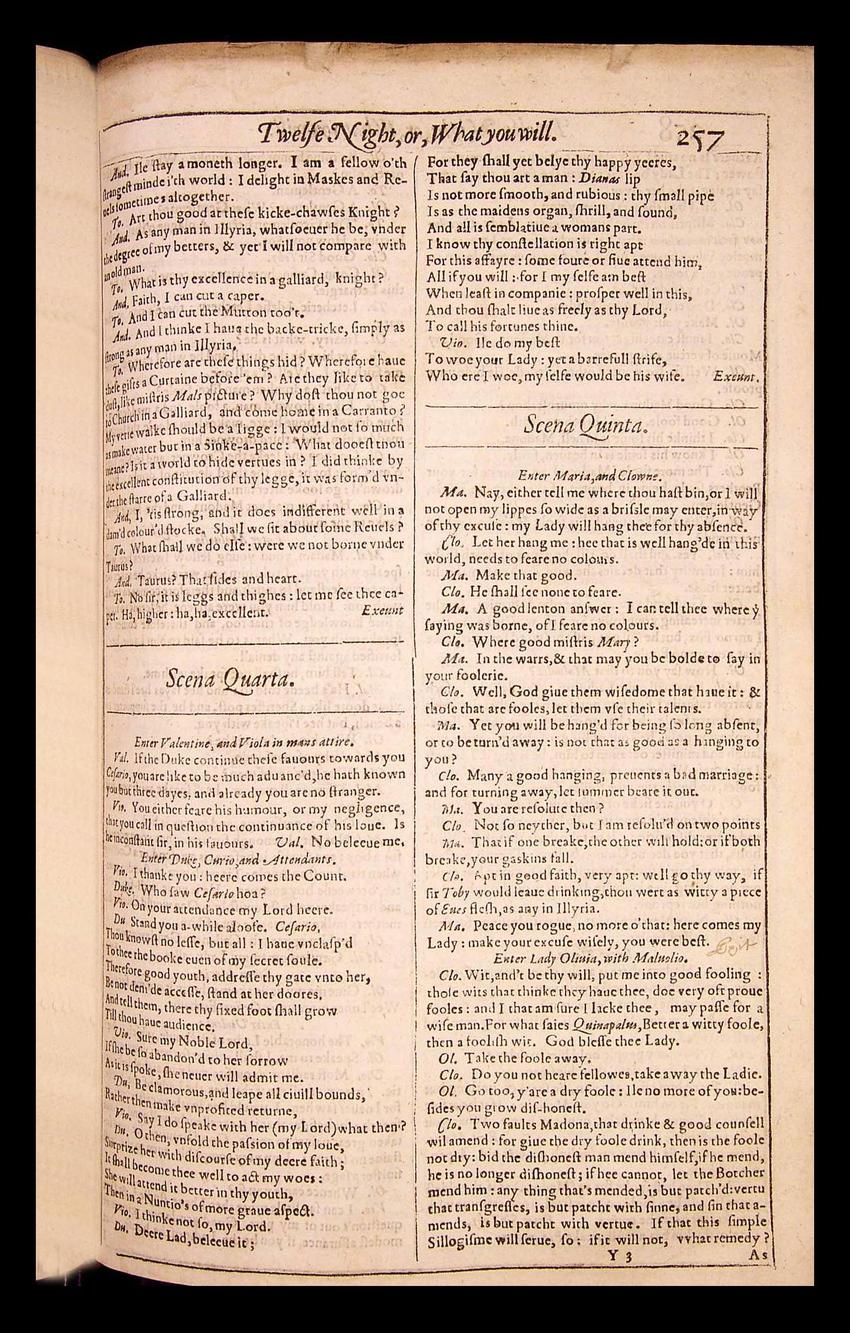 Twelfe Night, or, What you will. 257
And. Ile ſtay a moneth longer. I am a fellow o'th
ſtrangeſt minde i'th world: I delight in Maskes and Re-
uels ſometimes altogether.
To. Art thou good at theſe kicke-chawſes Knight?
And. As any man in Illyria, whatſoeuer he be, vnder
the degree of my betters, & yet I will not compare with
an old man.
To. What is thy excellence in a galliard, knight?
And. Faith, I can cut a caper.
To. And I can cut the Mutton too't.
And. And I thinke I haue the backe-tricke, ſimply as
ſtrong as any man in Illyria.
To. Wherefore are theſe things hid? Wherefore haue
theſe gifts a Curtaine before 'em? Are they like to take
duſt, like miſtris Mals picture? Why doſt thou not goe
to Church in a Galliard, and come home in a Carranto?
My verie walke ſhould be a Iigge: I would not ſo much
as make water but in a Sinke-a-pace: What dooeſt thou
meane? Is it a world to hide vertues in? I did thinke by
the excellent conſtitution of thy legge, it was form'd vn-
der the ſtarre of a Galliard.
And. I, 'tis ſtrong, and it does indifferent well in a
dam'd colour'd ſtocke. Shall we ſit about ſome Reuels?
To. What ſhall we do elſe: were we not borne vnder
Taurus?
And. Taurus? That ſides and heart.
To. No ſir, it is leggs and thighes: let me ſee thee ca-
per. Ha, higher: ha, ha, excellent. Exeunt
Scena Quarta.
Enter Valentine, and Viola in mans attire.
Val. If the Duke continue theſe fauours towards you
Ceſario, you are like to be much aduanc'd, he hath known
you but three dayes, and already you are no ſtranger.
Vio. You either feare his humour, or my negligence,
that you call in queſtion the continuance of his loue. Is
he inconſtant ſir, in his fauours. Val. No beleeue me.
Enter Duke, Curio, and Attendants.
Vio. I thanke you: heere comes the Count.
Duke. Who ſaw Ceſario hoa?
Vio. On your attendance my Lord heere.
Du. Stand you a-while aloofe. Ceſario,
Thou knowſt no leſſe, but all: I haue vnclaſp'd
To thee the booke euen of my ſecret ſoule.
Therefore good youth, addreſſe thy gate vnto her,
Be not deni'de acceſſe, ſtand at her doores,
And tell them, there thy fixed foot ſhall grow
Till thou haue audience.
Vio. Sure my Noble Lord,
If ſhe be ſo abandon'd to her ſorrow
As it is ſpoke, ſhe neuer will admit me.
Du. Be clamorous, and leape all ciuill bounds,
Rather then make vnprofited returne,
Vio. Say I do ſpeake with her (my Lord) what then?
Du. O then, vnfold the paſsion of my loue,
Surprize her with diſcourſe of my deere faith;
It ſhall become thee well to act my woes:
She will attend it better in thy youth,
Then in a Nuntio's of more graue aſpect.
Vio. I thinke not ſo, my Lord.
Du. Deere Lad, beleeue it;
For they ſhall yet belye thy happy yeeres,
That ſay thou art a man: Dianas lip
Is not more ſmooth, and rubious: thy ſmall pipe
Is as the maidens organ, ſhrill, and ſound,
And all is ſemblatiue a womans part.
I know thy conſtellation is right apt
For this affayre: ſome foure or fiue attend him,
All if you will: for I my ſelfe am beſt
When leaſt in companie: proſper well in this,
And thou ſhalt liue as freely as thy Lord,
To call his fortunes thine.
Vio. Ile do my beſt
To woe your Lady: yet a barrefull ſtrife,
Who ere I woe, my ſelfe would be his wife. Exeunt.
Scena Quinta.
Enter Maria, and Clowne.
Ma. Nay, either tell me where thou haſt bin, or I will
not open my lippes ſo wide as a briſsle may enter, in way
of thy excuſe: my Lady will hang thee for thy abſence.
Clo. Let her hang me: hee that is well hang'de in this
world, needs to feare no colours.
Ma. Make that good.
Clo. He ſhall ſee none to feare.
Ma. A good lenton anſwer: I can tell thee where y
ſaying was borne, of I feare no colours.
Clo. Where good miſtris Mary?
Ma. In the warrs, & that may you be bolde to ſay in
your foolerie.
Clo. Well, God giue them wiſedome that haue it: &
thoſe that are fooles, let them vſe their talents.
Ma. Yet you will be hang'd for being ſo long abſent,
or to be turn'd away: is not that as good as a hanging to
you?
Clo. Many a good hanging, preuents a bad marriage:
and for turning away, let ſummer beare it out.
Ma. You are reſolute then?
Clo. Not ſo neyther, but I am reſolu'd on two points
Ma. That if one breake, the other will hold: or if both
breake, your gaskins fall.
Clo. Apt in good faith, very apt: well go thy way, if
ſir Toby would leaue drinking, thou wert as witty a piece
of Eues fleſh, as any in Illyria.
Ma. Peace you rogue, no more o'that: here comes my
Lady: make your excuſe wiſely, you were beſt. Exit
Enter Lady Oliuia, with Maluolio.
Clo. Wit, and't be thy will, put me into good fooling:
thoſe wits that thinke they haue thee, doe very oft proue
fooles: and I that am ſure I lacke thee, may paſſe for a
wiſe man. For what ſaies Quinapalus, Better a witty foole,
then a fooliſh wit. God bleſſe thee Lady.
Ol. Take the foole away.
Clo. Do you not heare fellowes, take away the Ladie.
Ol. Go too, y'are a dry foole: Ile no more of you: be-
ſides you grow diſ-honeſt.
Clo. Two faults Madona, that drinke & good counſell
wil amend: for giue the dry foole drink, then is the foole
not dry: bid the diſhoneſt man mend himſelf, if he mend,
he is no longer diſhoneſt; if hee cannot, let the Botcher
mend him: any thing that's mended, is but patch'd: vertu
that tranſgreſſes, is but patcht with ſinne, and ſin that a-
mends, is but patcht with vertue. If that this ſimple
Sillogiſme will ſerue, ſo: if it will not, vvhat remedy?
Y 3 As